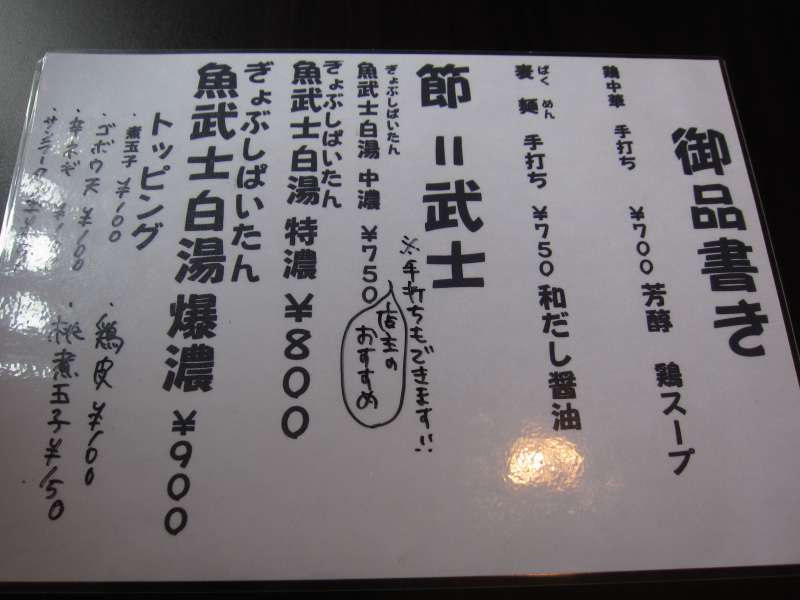 御品書き
鶏中華 手打ち ¥700 芳醇 鶏スープ
ばく めん
麦 麺 手打ち ¥750 和だし醤油
節=武士
※手打ちもできます!!
ぎょぶしぱいたん
魚武士白湯 中濃 ¥750
店主の
おすすめ
ぎょぶしぱいたん
魚武士白湯 特濃 ¥800
ぎょぶしぱいたん
魚武士白湯 爆濃 ¥900
トッピング
・煮玉子 ¥100
・ゴボウ天 ¥100
・鶏皮 ¥100
・辛ネギ
・桃煮玉子 ¥150